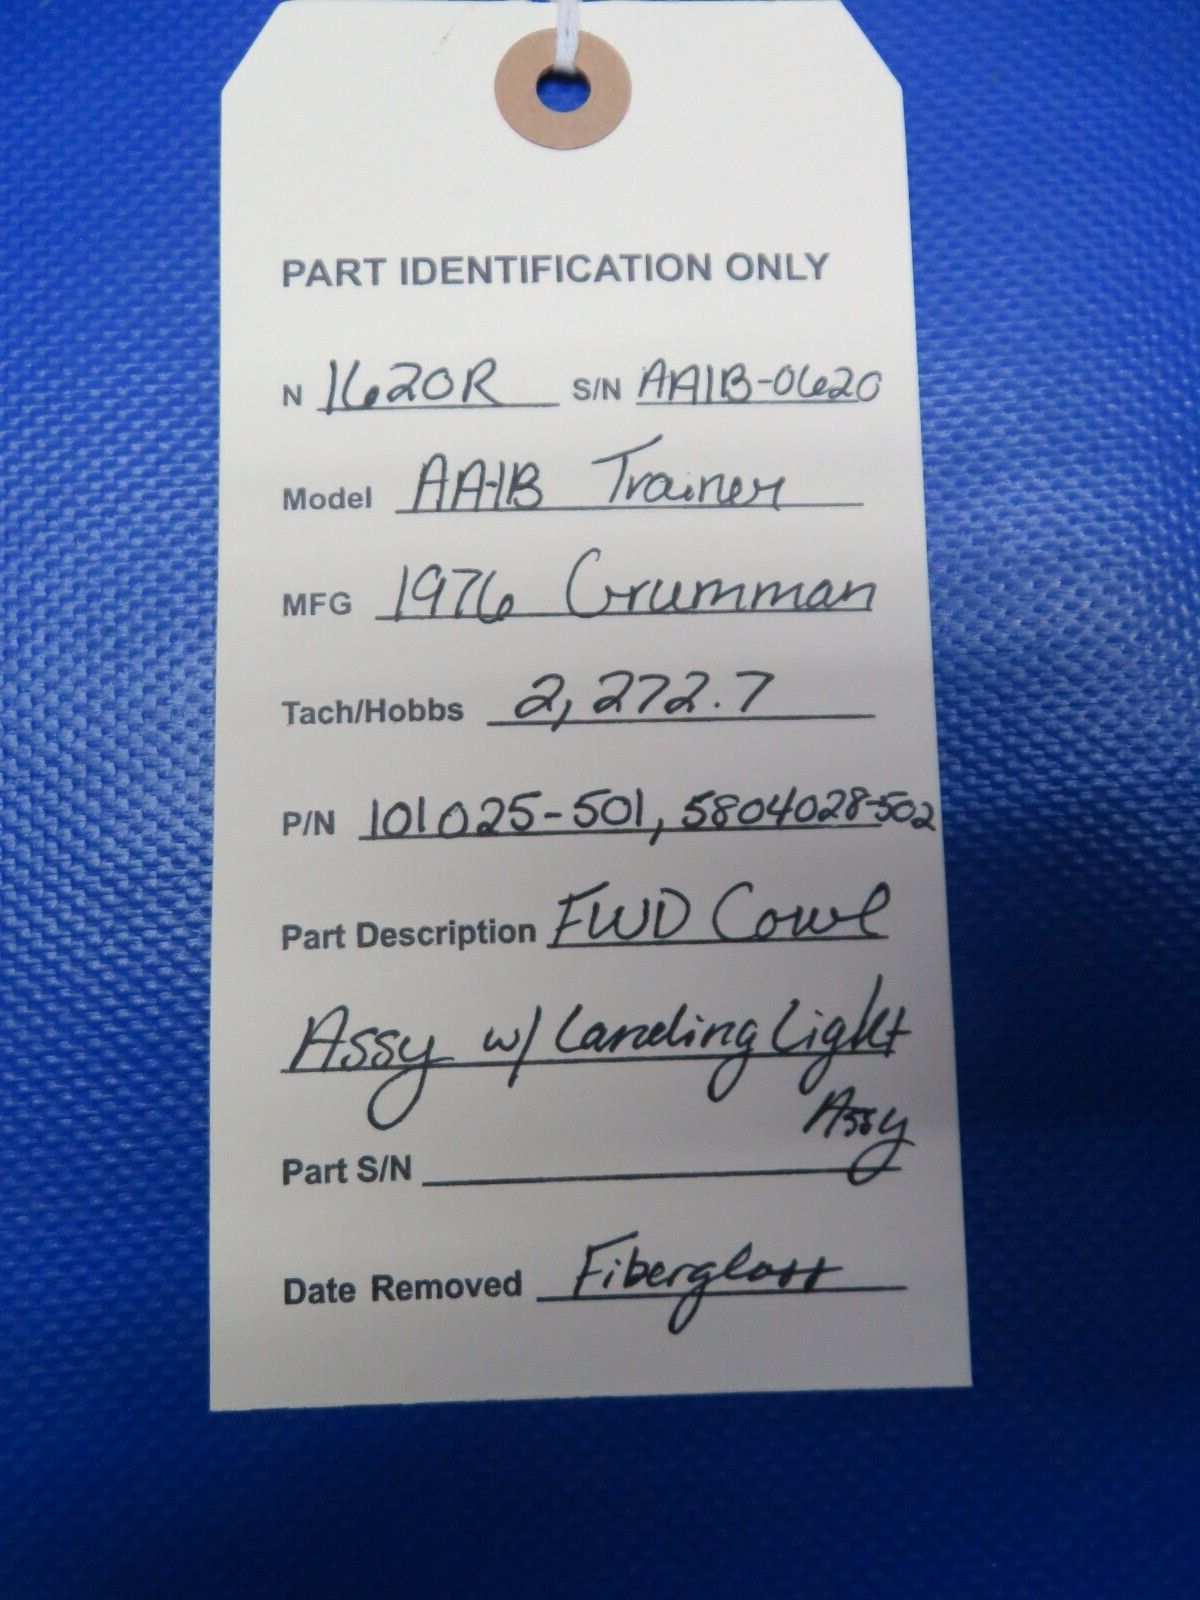 PART IDENTIFICATION ONLY
N 1620R S/N AA1B-0620
Model AA-1B Trainer
MFG 1976 Grumman
Tach/Hobbs 2,272.7
P/N 101025-501, 5804028-502
Part Description FWD Cowl
Assy w/ Landing Light
Assy
Part S/N
Date Removed Fiberglass